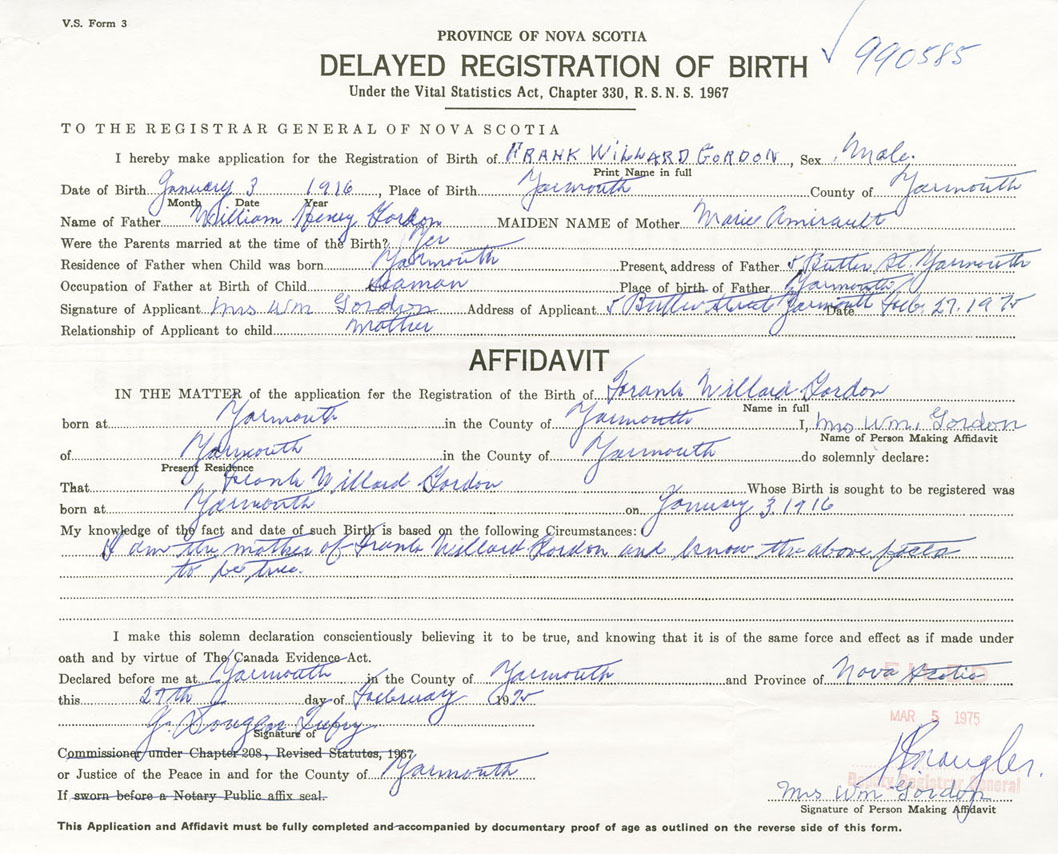 V.S. Form 3
PROVINCE OF NOVA SCOTIA
990585
DELAYED REGISTRATION OF BIRTH
Under the Vital Statistics Act, Chapter 330, R. S. N. S. 1967
TO THE REGISTRAR GENERAL OF NOVA SCOTIA
I hereby make application for the Registration of Birth of FRANK WILLARD GORDON, Sex Male.
Print Name in full
Date of Birth January 3 1916, Place of Birth Yarmouth County of Yarmouth
Month Date Year
Name of Father William Henry Gordon MAIDEN NAME of Mother Marie Amirault
Were the Parents married at the time of the Birth? Yes
Residence of Father when Child was born Yarmouth Present address of Father 5 Butler St. Yarmouth
Occupation of Father at Birth of Child Seaman Place of birth of Father Yarmouth
Signature of Applicant Mrs Wm Gordon Address of Applicant 5 Butler Street Yarmouth Date Feb. 27. 1975
Relationship of Applicant to child mother
AFFIDAVIT
IN THE MATTER of the application for the Registration of the Birth of Frank Willard Gordon
Name in full
born at Yarmouth in the County of Yarmouth I, Mrs Wm. Gordon
Name of Person Making Affidavit
of Yarmouth in the County of Yarmouth do solemnly declare:
Present Residence
That Frank Willard Gordon Whose Birth is sought to be registered was
born at Yarmouth on January 3, 1916
My knowledge of the fact and date of such Birth is based on the following Circumstances:
I am the mother of Frank Willard Gordon and know the above facts
to be true.
I make this solemn declaration conscientiously believing it to be true, and knowing that it is of the same force and effect as if made under
oath and by virtue of The Canada Evidence Act.
Declared before me at Yarmouth in the County of Yarmouth and Province of Nova Scotia
FILED
this 27th day of February 1975
MAR 5 1975
G.
Signature of
Commissioner under Chapter 208, Revised Statutes, 1967
or Justice of the Peace in and for the County of Yarmouth
Deputy Registrar General
If sworn before a Notary Public affix seal.
Mrs Wm Gordon
Signature of Person Making Affidavit
This Application and Affidavit must be fully completed and accompanied by documentary proof of age as outlined on the reverse side of this form.